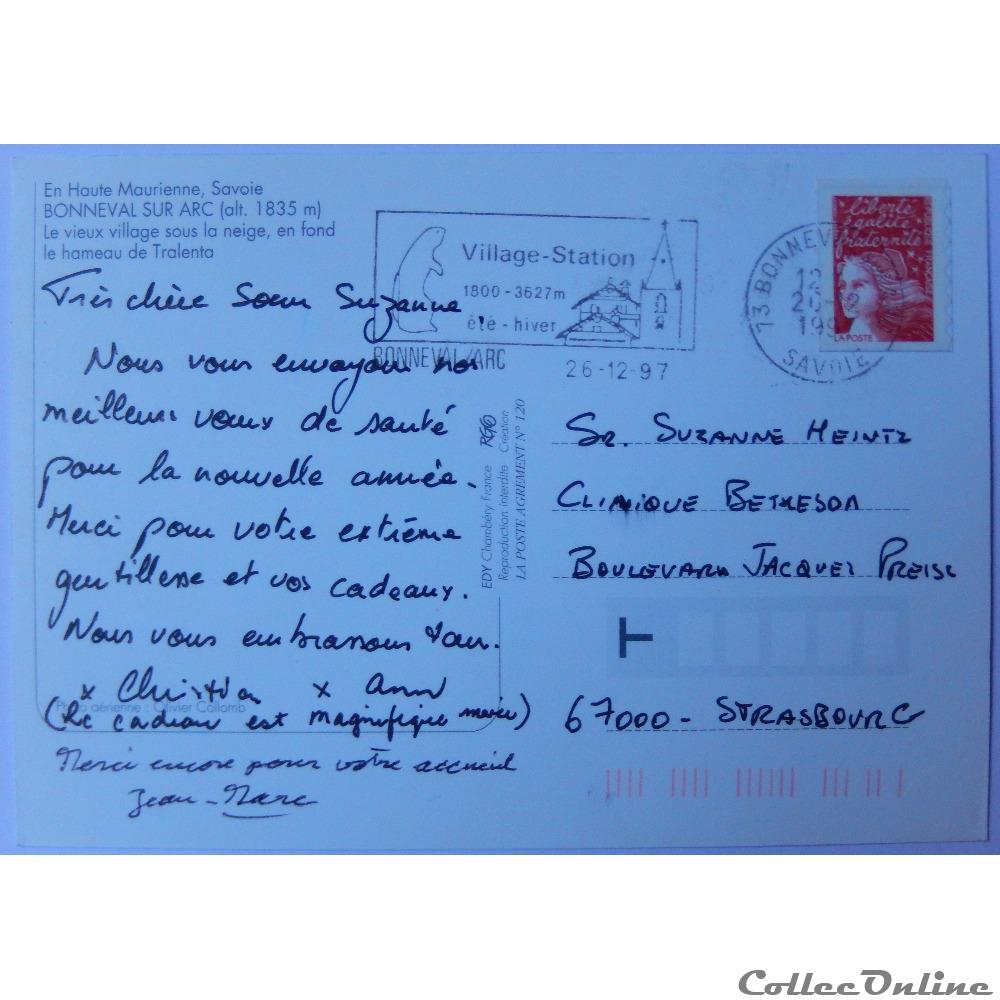 En Haute Maurienne, Savoie
BONNEVAL SUR ARC (alt. 1835 m)
Le vieux village sous la neige, en fond
le hameau de Tralenta
Village-Station
1800 - 3627m
été - hiver
BONNEVAL/ARC
26-12-97
73 BONNEV
SAVOIE
liberté
égalité
fraternité
LA POSTE
Très chère Sœur Suzanne,
Nous vous envoyons nos
meilleurs vœux de santé
pour la nouvelle année.
Merci pour votre extrême
gentillesse et vos cadeaux.
Nous vous embrassons
x Christian x Ann
(Le cadeau est magnifique merci)
Photo aérienne : Olivier Collomb
Merci encore pour votre accueil
Jean-Marc
EDY Chambéry France
Reproduction interdite Création
LA POSTE AGREMENT N° 120
Sr. SUZANNE HEINTZ
CLINIQUE BETHESDA
BOULEVARD JACQUES PREISS
T
67000 - STRASBOURG
CollecOnline